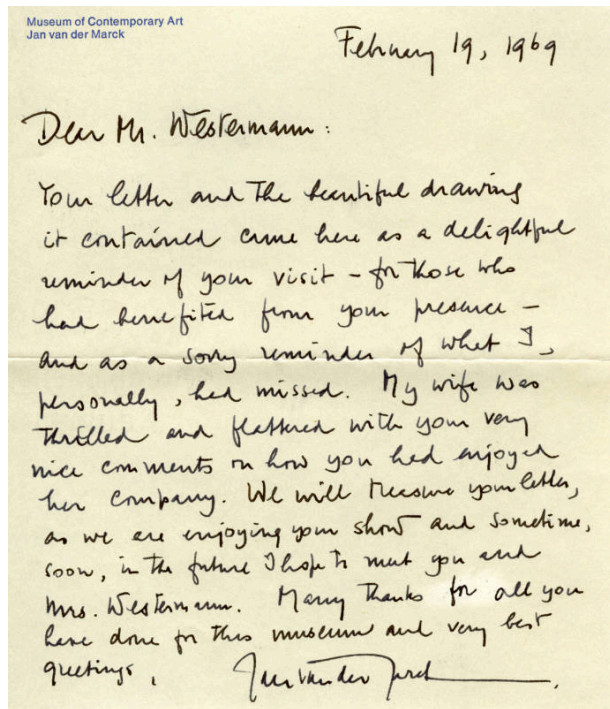 Museum of Contemporary Art
Jan van der Marck
February 19, 1969
Dear Mr. Westermann:
Your letter and the beautiful drawing
it contained came here as a delightful
reminder of your visit – for those who
had benefited from your presence –
and as a sorry reminder of what I,
personally, had missed. My wife was
thrilled and flattered with your very
nice comments on how you had enjoyed
her company. We will treasure your letter,
as we are enjoying your show and sometime,
soon, in the future I hope to meet you and
Mrs. Westermann. Many thanks for all you
have done for this museum and very best
greetings,
Jan van der Marck